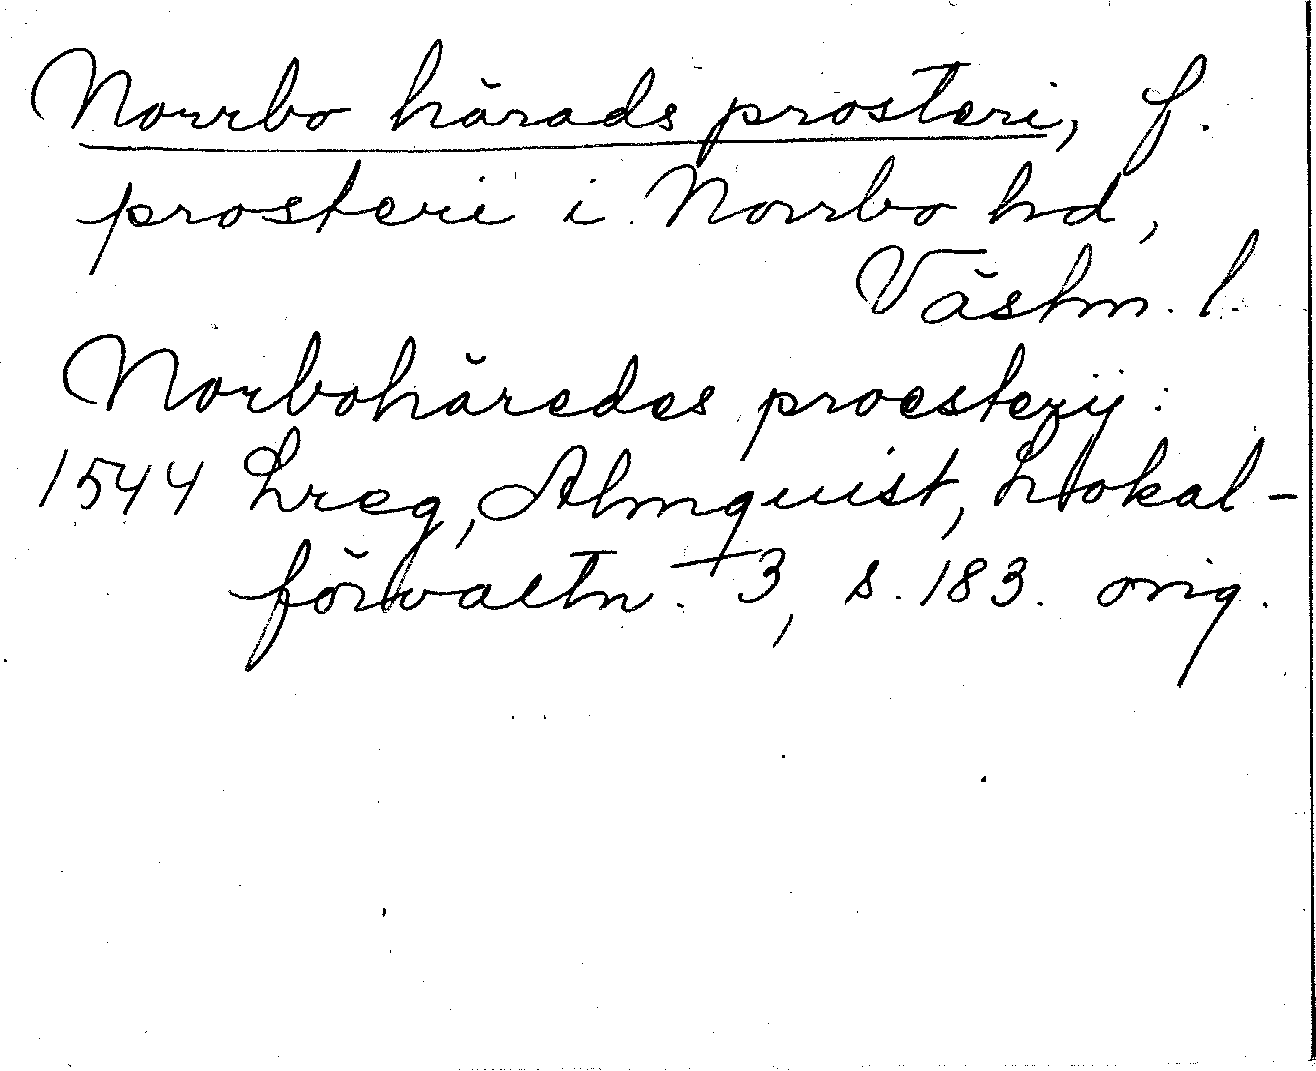 Norrbo härads prosteri, f.
prosteri i Norrbo hd,
Västm. l.
Norbohäredes proesterij:
1544 Lreg, Almquist, Lokal-
förvaltn. 3, s. 183. orig.